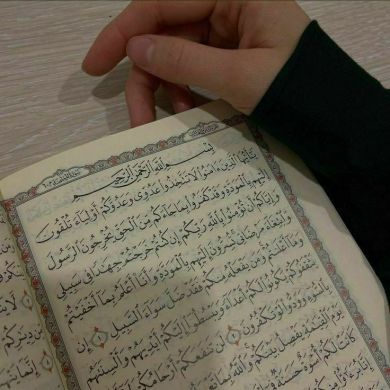 بِسْمِ اللَّهِ الرَّحْمَٰنِ الرَّحِيمِ
يَٰٓأَيُّهَا الَّذِينَ ءَامَنُوا لَا تَتَّخِذُوا عَدُوِّي وَعَدُوَّكُمْ أَوْلِيَآءَ تُلْقُونَ
إِلَيْهِم بِالْمَوَدَّةِ وَقَدْ كَفَرُوا بِمَا جَآءَكُم مِّنَ الْحَقِّ يُخْرِجُونَ الرَّسُولَ
وَإِيَّاكُمْ أَن تُؤْمِنُوا بِاللَّهِ رَبِّكُمْ إِن كُنتُمْ خَرَجْتُمْ جِهَٰدًا فِي سَبِيلِي
وَابْتِغَآءَ مَرْضَاتِي تُسِرُّونَ إِلَيْهِم بِالْمَوَدَّةِ وَأَنَا أَعْلَمُ بِمَآ أَخْفَيْتُمْ
وَمَآ أَعْلَنتُمْ وَمَن يَفْعَلْهُ مِنكُمْ فَقَدْ ضَلَّ سَوَآءَ السَّبِيلِ ١ إِن
يَثْقَفُوكُمْ يَكُونُوا لَكُمْ أَعْدَآءً وَيَبْسُطُوا إِلَيْكُمْ أَيْدِيَهُمْ وَأَلْسِنَتَهُم
بِالسُّوٓءِ وَوَدُّوا لَوْ تَكْفُرُونَ ٢ لَن تَنفَعَكُمْ أَرْحَامُكُمْ
يَوْمَ الْقِيَٰمَةِ يَفْصِلُ بَيْنَكُمْ وَاللَّهُ
كَانَتْ لَكُمْ أُسْوَةٌ